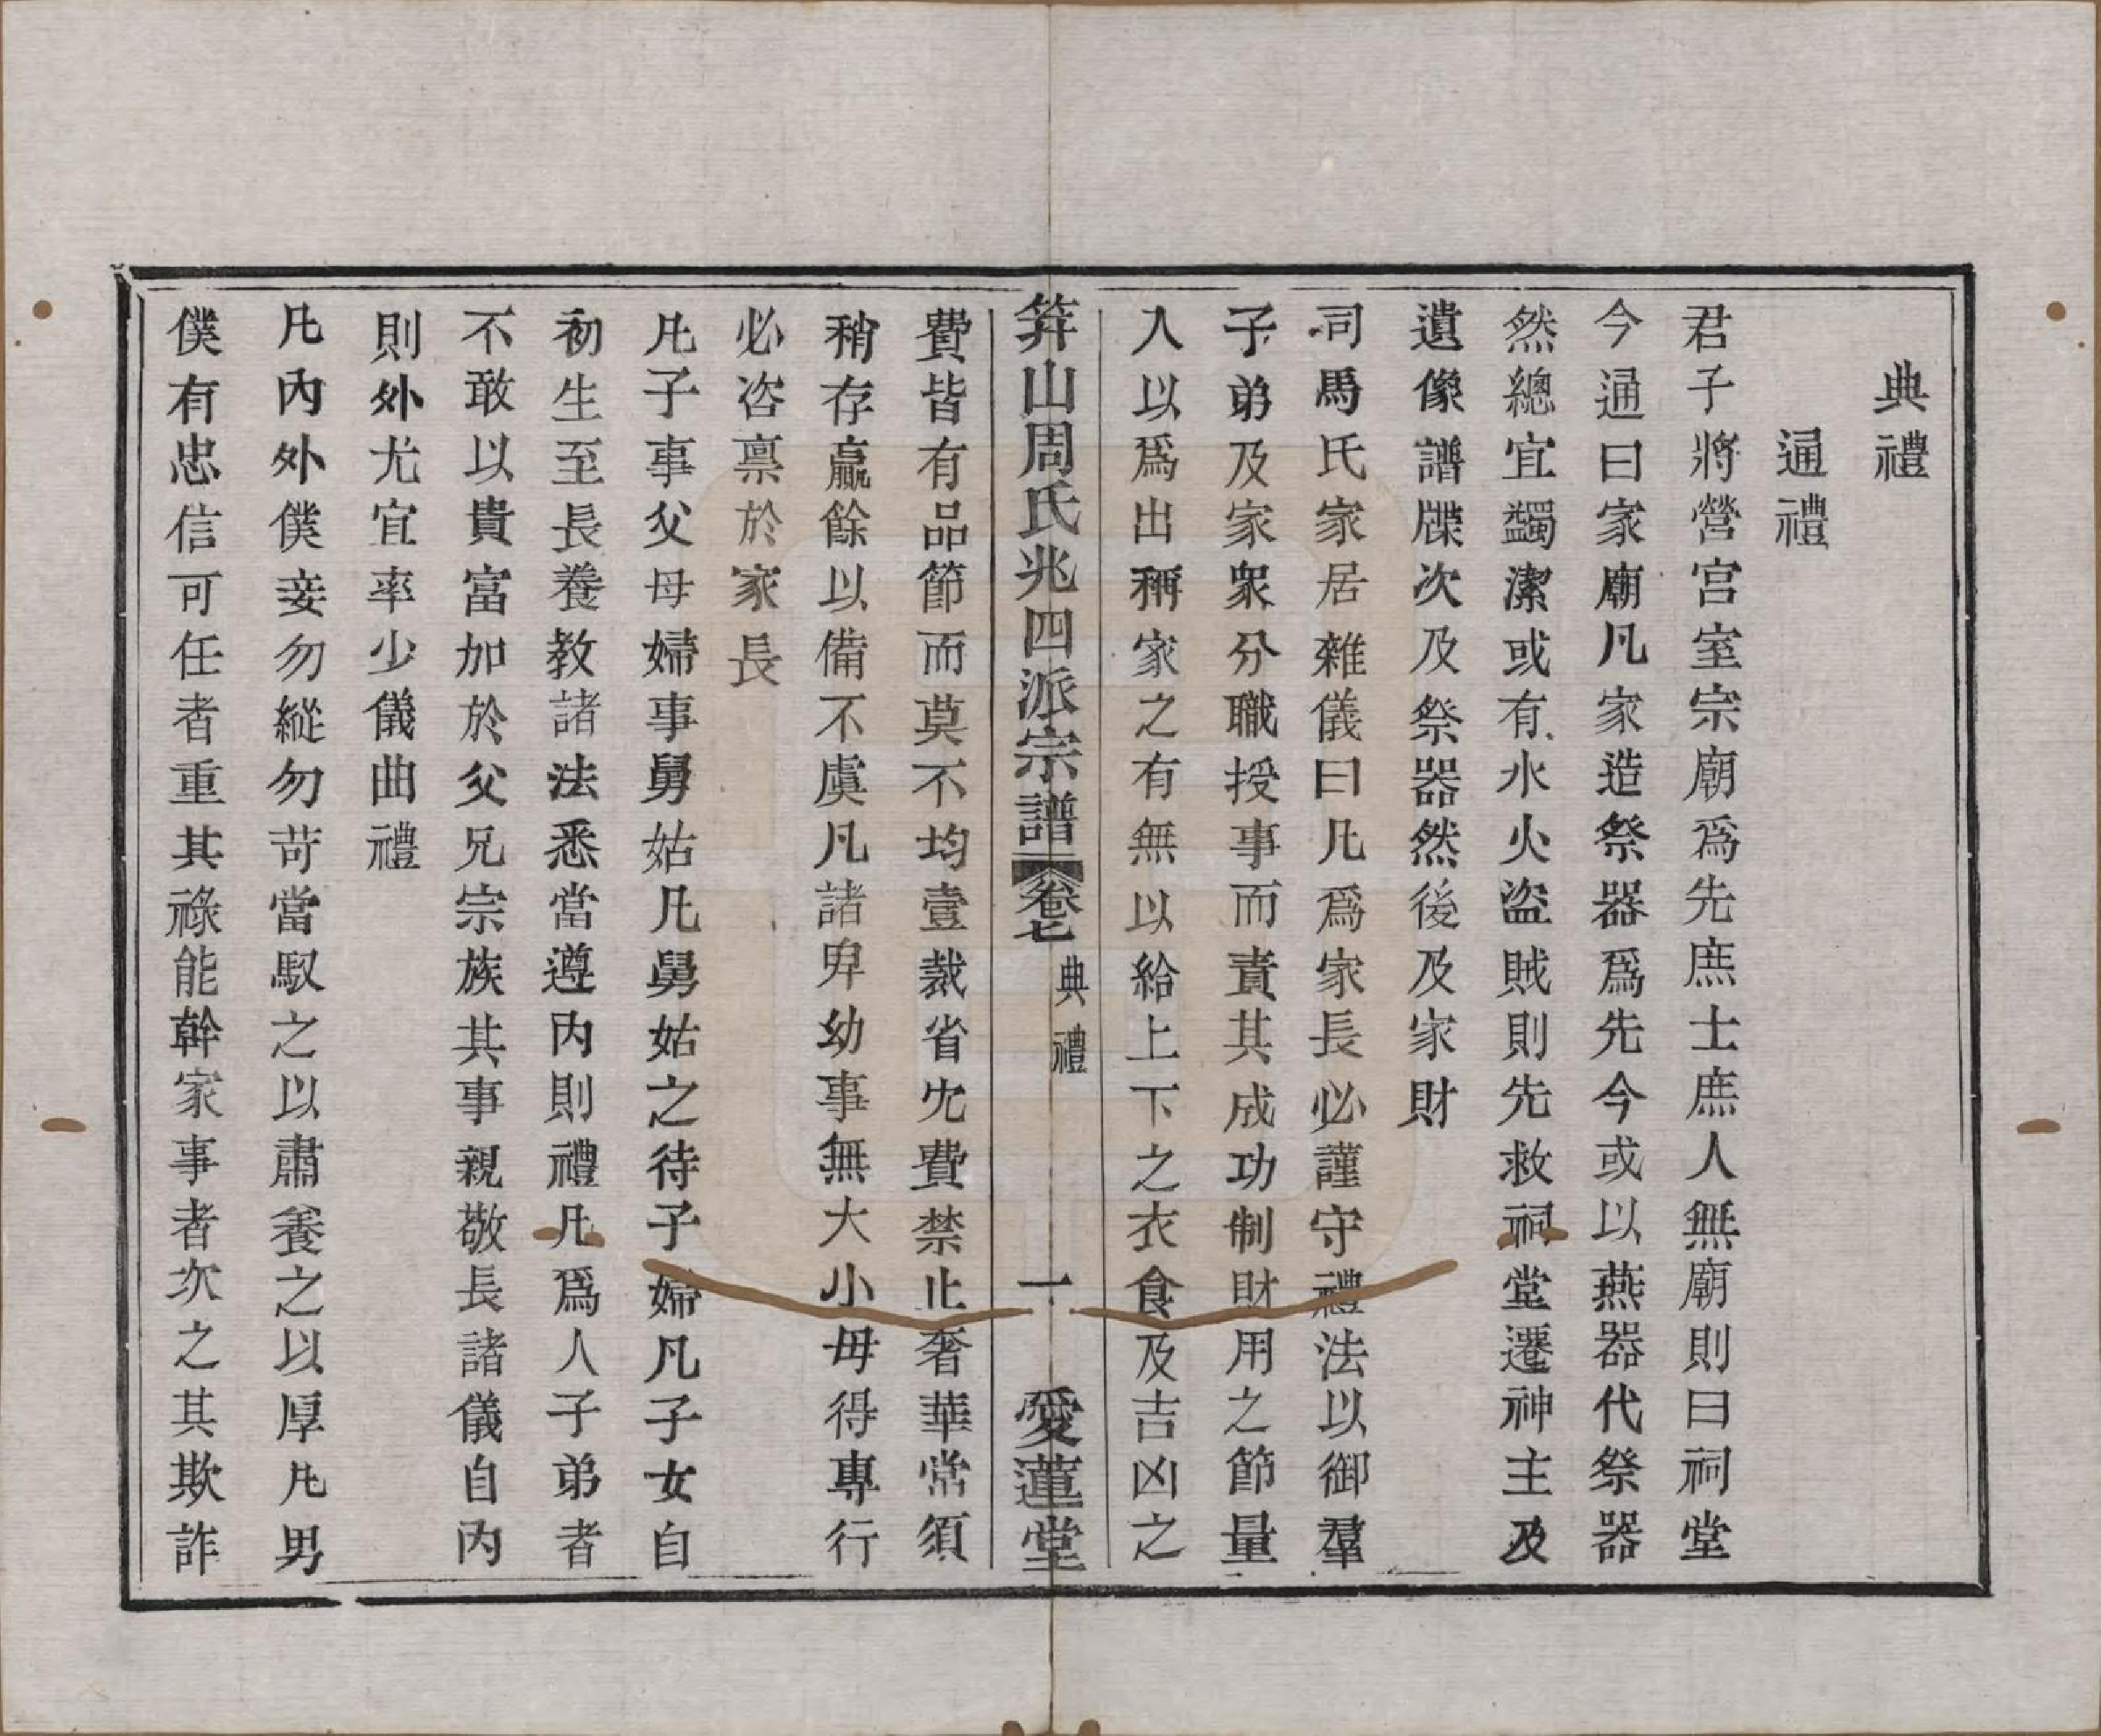 典禮
通禮
君子將營宮室宗廟爲先庶士庶人無廟則曰祠堂
今通曰家廟凡家造祭器爲先今或以燕器代祭器
然總宜蠲潔或有水火盜賊則先救祠堂遷神主及
遺像譜牒次及祭器然後及家財
司馬氏家居雜儀曰凡爲家長必謹守禮法以御羣
子弟及家衆分職授事而責其成功制財用之節量
入以爲出稱家之有無以給上下之衣食及吉凶之
箬山周氏兆四派宗譜 卷七 典禮 一 愛蓮堂
費皆有品節而莫不均壹裁省宂費禁止奢華常須
稍存贏餘以備不虞凡諸卑幼事無大小毋得專行
必咨禀於家長
凡子事父母婦事舅姑凡舅姑之待子婦凡子女自
初生至長養教諸法悉當遵內則禮凡爲人子弟者
不敢以貴富加於父兄宗族其事親敬長諸儀自內
則外尤宜率少儀曲禮
凡內外僕妾勿縱勿苛當馭之以肅養之以厚凡男
僕有忠信可任者重其祿能幹家事者次之其欺詐